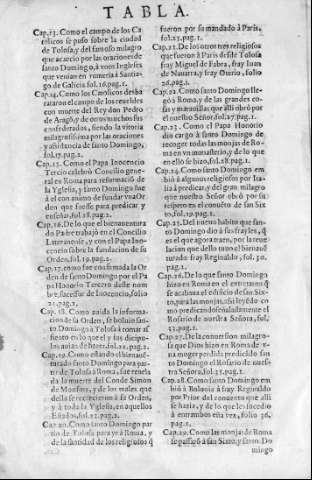 TABLA.
Cap.13. Como el campo de los Ca
tolicos se puso sobre la ciudad
de Tolosa, y del famoso milagro
que acaecio por las oraciones de
santo Domingo, à vnos Ingleses
que venian en romeria à Santia-
go de Galicia. fol.16.pag.1.
Cap.14. Como los Catolicos desba
rataron el campo de los rebeldes
con muerte del Rey don Pedro
de Aragõ, y de otros muchos sus
confederados, siendo la vitoria
milagrosissima por las oraciones
y asistencia de santo Domingo,
fol.17.pag.1.
Cap.15. Como el Papa Inocencio
Tercio celebrò Concilio gene-
ral en Roma para reformaciõ de
la Yglesia, y santo Domingo fue
à el con animo de fundar vna Or
den que fuesse para predicar y
enseñar, fol.18.pag.2.
Cap.16. De lo que el bienauentura
do Padre trabajò en el Concilio
Lateranense, y con el Papa Ino-
cencio sobre la fundacion de su
Orden, fol.19.pag.1.
Cap.17. como fue confirmada la Or
den de santo Domingo por el Pa
pa Honorio Tercero deste nom
bre, sucessor de Inocencio, folio
21.pag.1.
Cap. 18. Como auida la informa-
cion de su Orden, se boluio san-
to Domingo à Tolosa à tomar as
siento en lo que el y sus discipu-
los auian de hazer, fol.22.pag.1.
Cap.19. Como estando el bienauē-
turado santo Domingo para par-
tir de Tolosa à Roma, fue reuela
da la muerte del Conde Simon
de Monfort, y de los males que
della se recrecieron à su Orden,
y à toda la Yglesia, en aquellos
Estados, fol.22.pag.2.
Cap.20. Como santo Domingo par
tio de Tolosa para yr à Roma, y
de la santidad de los religiosos q̃
fueron por su mandado à Paris,
fol.23.pag.1.
Cap.21. De los otros tres religiosos
que fueron à Paris desde Tolosa
fray Miguel de Fabra, fray Iuan
de Nauarra, y fray Oterio, folio
26.pag.1.
Cap.22. Como santo Domingo lle-
gò à Roma, y de las grandes co-
sas y marauillas que alli obrò por
el nuestro Señor, fol.27.pag.1.
Cap.23. Como el Papa Honorio
dio cargo à santo Domingo de
recoger todas las monjas de Ro-
ma en vn monasterio, y de lo que
en ello se hizo, fol.28.pag.1.
Cap.24. Como santo Domingo em
biò à algunos religiosos por Ita-
lia à predicar, y del gran milagro
que nuestro Señor obrò por su
respeto en el conuēto de san Six
to, fol.29.pag.1.
Cap.25. Del nueuo habito que san-
to Domingo dio à sus frayles, q̃
es el que agora traen, por la reue
lacion que dello tuuo el bienau
turado fray Reginaldo, fol. 30.
pag.1.
Cap.26. De lo que santo Domingo
hizo en Roma en el entretanto q̃
se acabaua el edificio de san Six-
to, para las monjas, assi leyēdo co
mo predicando particularmente
el Rosario de nuestra Señora, fol.
32.pag.1.
Cap.27. De la conuersion milagro-
sa que Dios hizo en Roma de v-
na muger perdida predicando san
to Domingo el Rosario de nues-
tra Señora fol.35.pag.1.
Cap.28. Como santo Domingo em
biò à Bolonia à fray Reginaldo
por Prior del conuento que alli
se hazia, y de lo que le sucedio
à entrambos esta vez, folio 36.
pag.1.
Cap.29. Como las monjas de Roma
se passarõ à san Sixto, y santo Do
mingo